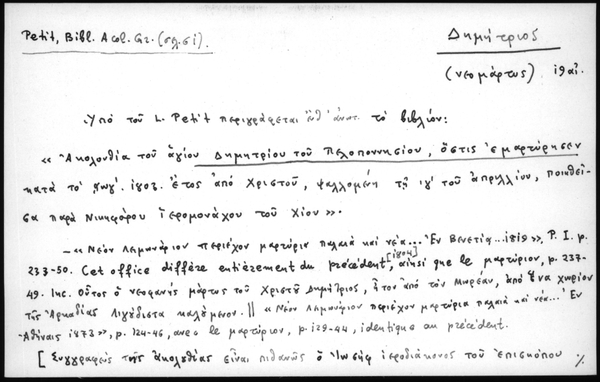 Petit, Bibl. Acol. Gr. (σελ. 61).
Δημήτριος
(νεομάρτυς) ιθ' αἰ.
Ὑπὸ τοῦ L. Petit περιγράφεται τὸ βιβλίον:
« Ἀκολουθία τοῦ ἁγίου Δημητρίου τοῦ Πελοποννησίου, ὅστις ἐμαρτύρησεν
κατὰ τὸ 1803. ἔτος ἀπὸ Χριστοῦ, ψαλλομένη τῇ ιγ' τοῦ ἀπριλλίου, ποιηθεῖ-
σα παρὰ Νικηφόρου ἱερομονάχου τοῦ Χίου ».
— « Νέον Λειμωνάριον περιέχον μαρτύρια παλαιὰ καὶ νέα... Ἐν Βενετίᾳ... 1819 », P. I. p.
233-50. Cet office diffère entièrement du précédent, [1804] ainsi que le martyrion, p. 237-
49. Inc. Οὗτος ὁ νεοφανὴς μάρτυς τοῦ Χριστοῦ Δημήτριος, ἦτον ἀπὸ τὸν Μωρέαν, ἀπὸ ἕνα χωρίον
τῆς Ἀρκαδίας Λιγούδιστα καλούμενον. || « Νέον Λειμωνάριον περιέχον μαρτύρια παλαιὰ καὶ νέα... Ἐν
Ἀθήναις 1873 », p. 124-46, avec le martyrion, p. 129-44, identique au précédent.
[ Συγγραφεὺς τῆς ἀκολουθίας εἶναι πιθανῶς ὁ Ἰωσὴφ ἱεροδιάκονος τοῦ ἐπισκόπου ./.